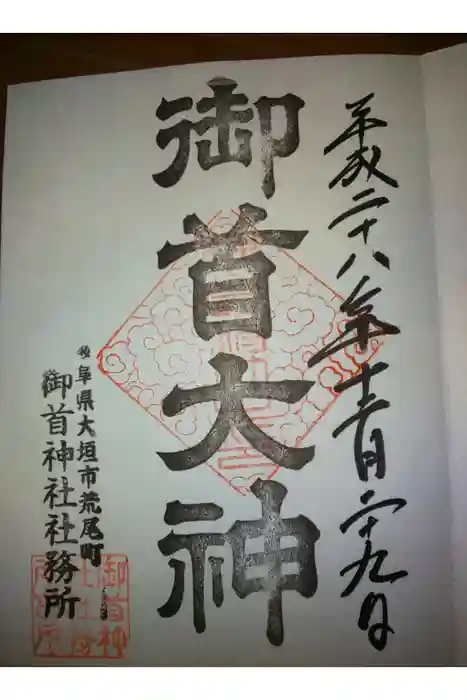 平成二十八年十二月二十九日
御首大神
岐阜県大垣市荒尾町
御首神社社務所